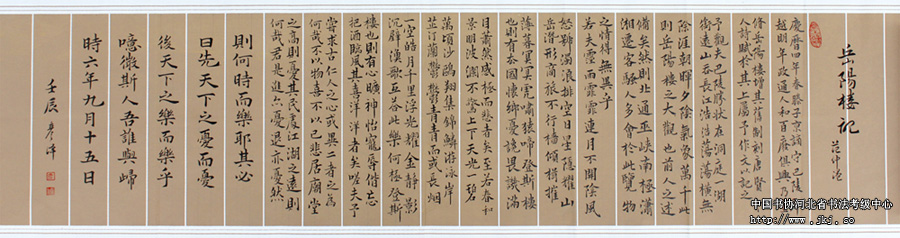 岳陽樓記
范仲淹
慶曆四年春滕子京謫守巴陵
越明年政通人和百廢俱興乃
修岳陽樓增其舊制刻唐賢
人詩賦於其上屬予作文以記之
予觀夫巴陵勝狀在洞庭一湖
銜遠山吞長江浩浩蕩蕩橫無
際涯朝暉夕陰氣象萬千此
則岳陽樓之大觀也前人之述
備矣然則北通巫峽南極瀟
湘遷客騷人多會於此覽物
之情得無異乎
若夫霪雨霏霏連月不開陰風
怒號濁浪排空日星隱耀山
岳潛形商旅不行檣傾楫摧
薄暮冥冥虎嘯猿啼登斯樓
也則有去國懷鄉憂讒畏譏滿
目蕭然感極而悲者矣至若春和
景明波瀾不驚上下天光一碧
萬頃沙鷗翔集錦鱗游泳岸
芷汀蘭鬱鬱青青而或長煙
一空皓月千里浮光耀金靜影
沉璧漁歌互答此樂何極登斯
樓也則有心曠神怡寵辱偕忘
把酒臨風其喜洋洋者矣嗟夫予
嘗求古仁人之心或異二者之為
何哉不以物喜不以己悲居廟堂
之高則憂其民處江湖之遠則
君是進亦憂退亦憂然
則何時而樂耶其必
曰先天下之憂而憂
後天下之樂而樂乎
噫微斯人吾誰與歸
時六年九月十五日
壬辰
中国书协河北省书法考级中心
http://www.jkj.so